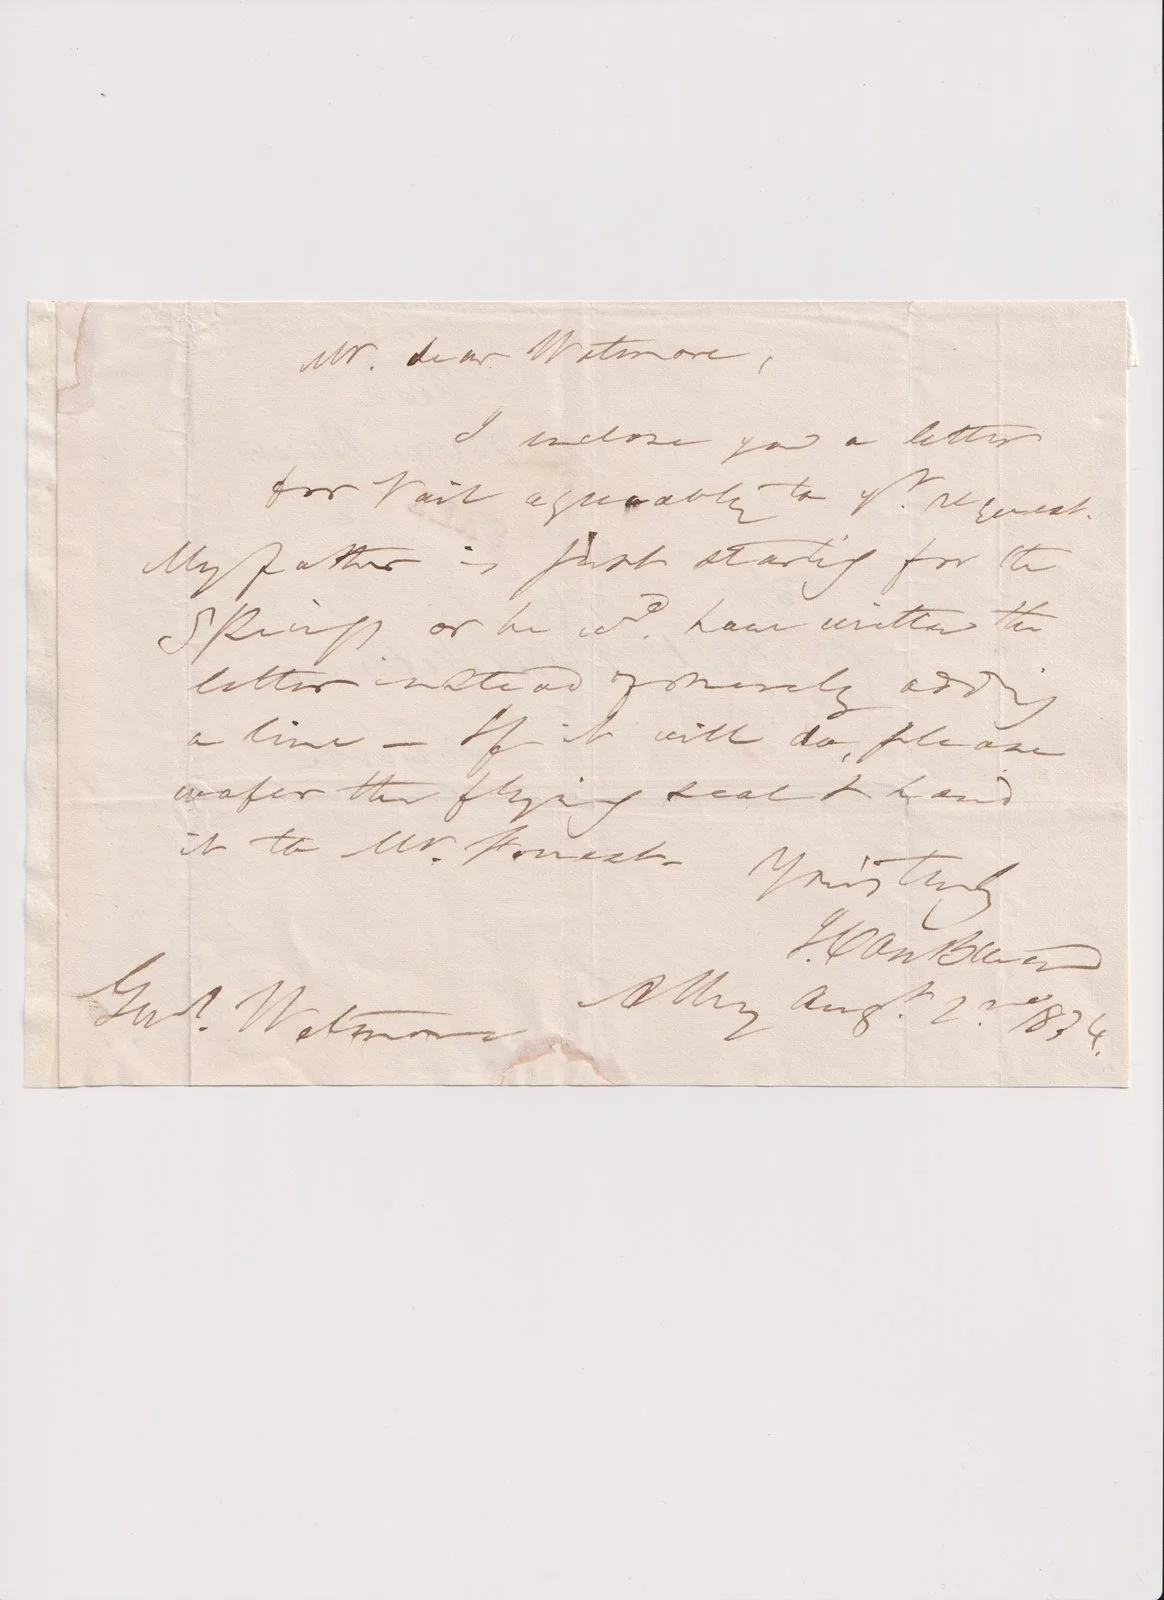 My. dear Wetmore,
I enclose you a letter
for Vail agreeably to yr. request.
My father is just starting for the
Springs or he wd. have written the
letter instead of merely adding
a line — If it will do, please
wafer the flying seal & hand
it to Mr. Forrest.
Yours truly
J. Van Buren
Albny Augt. 2nd 1834.
Genl. Wetmore